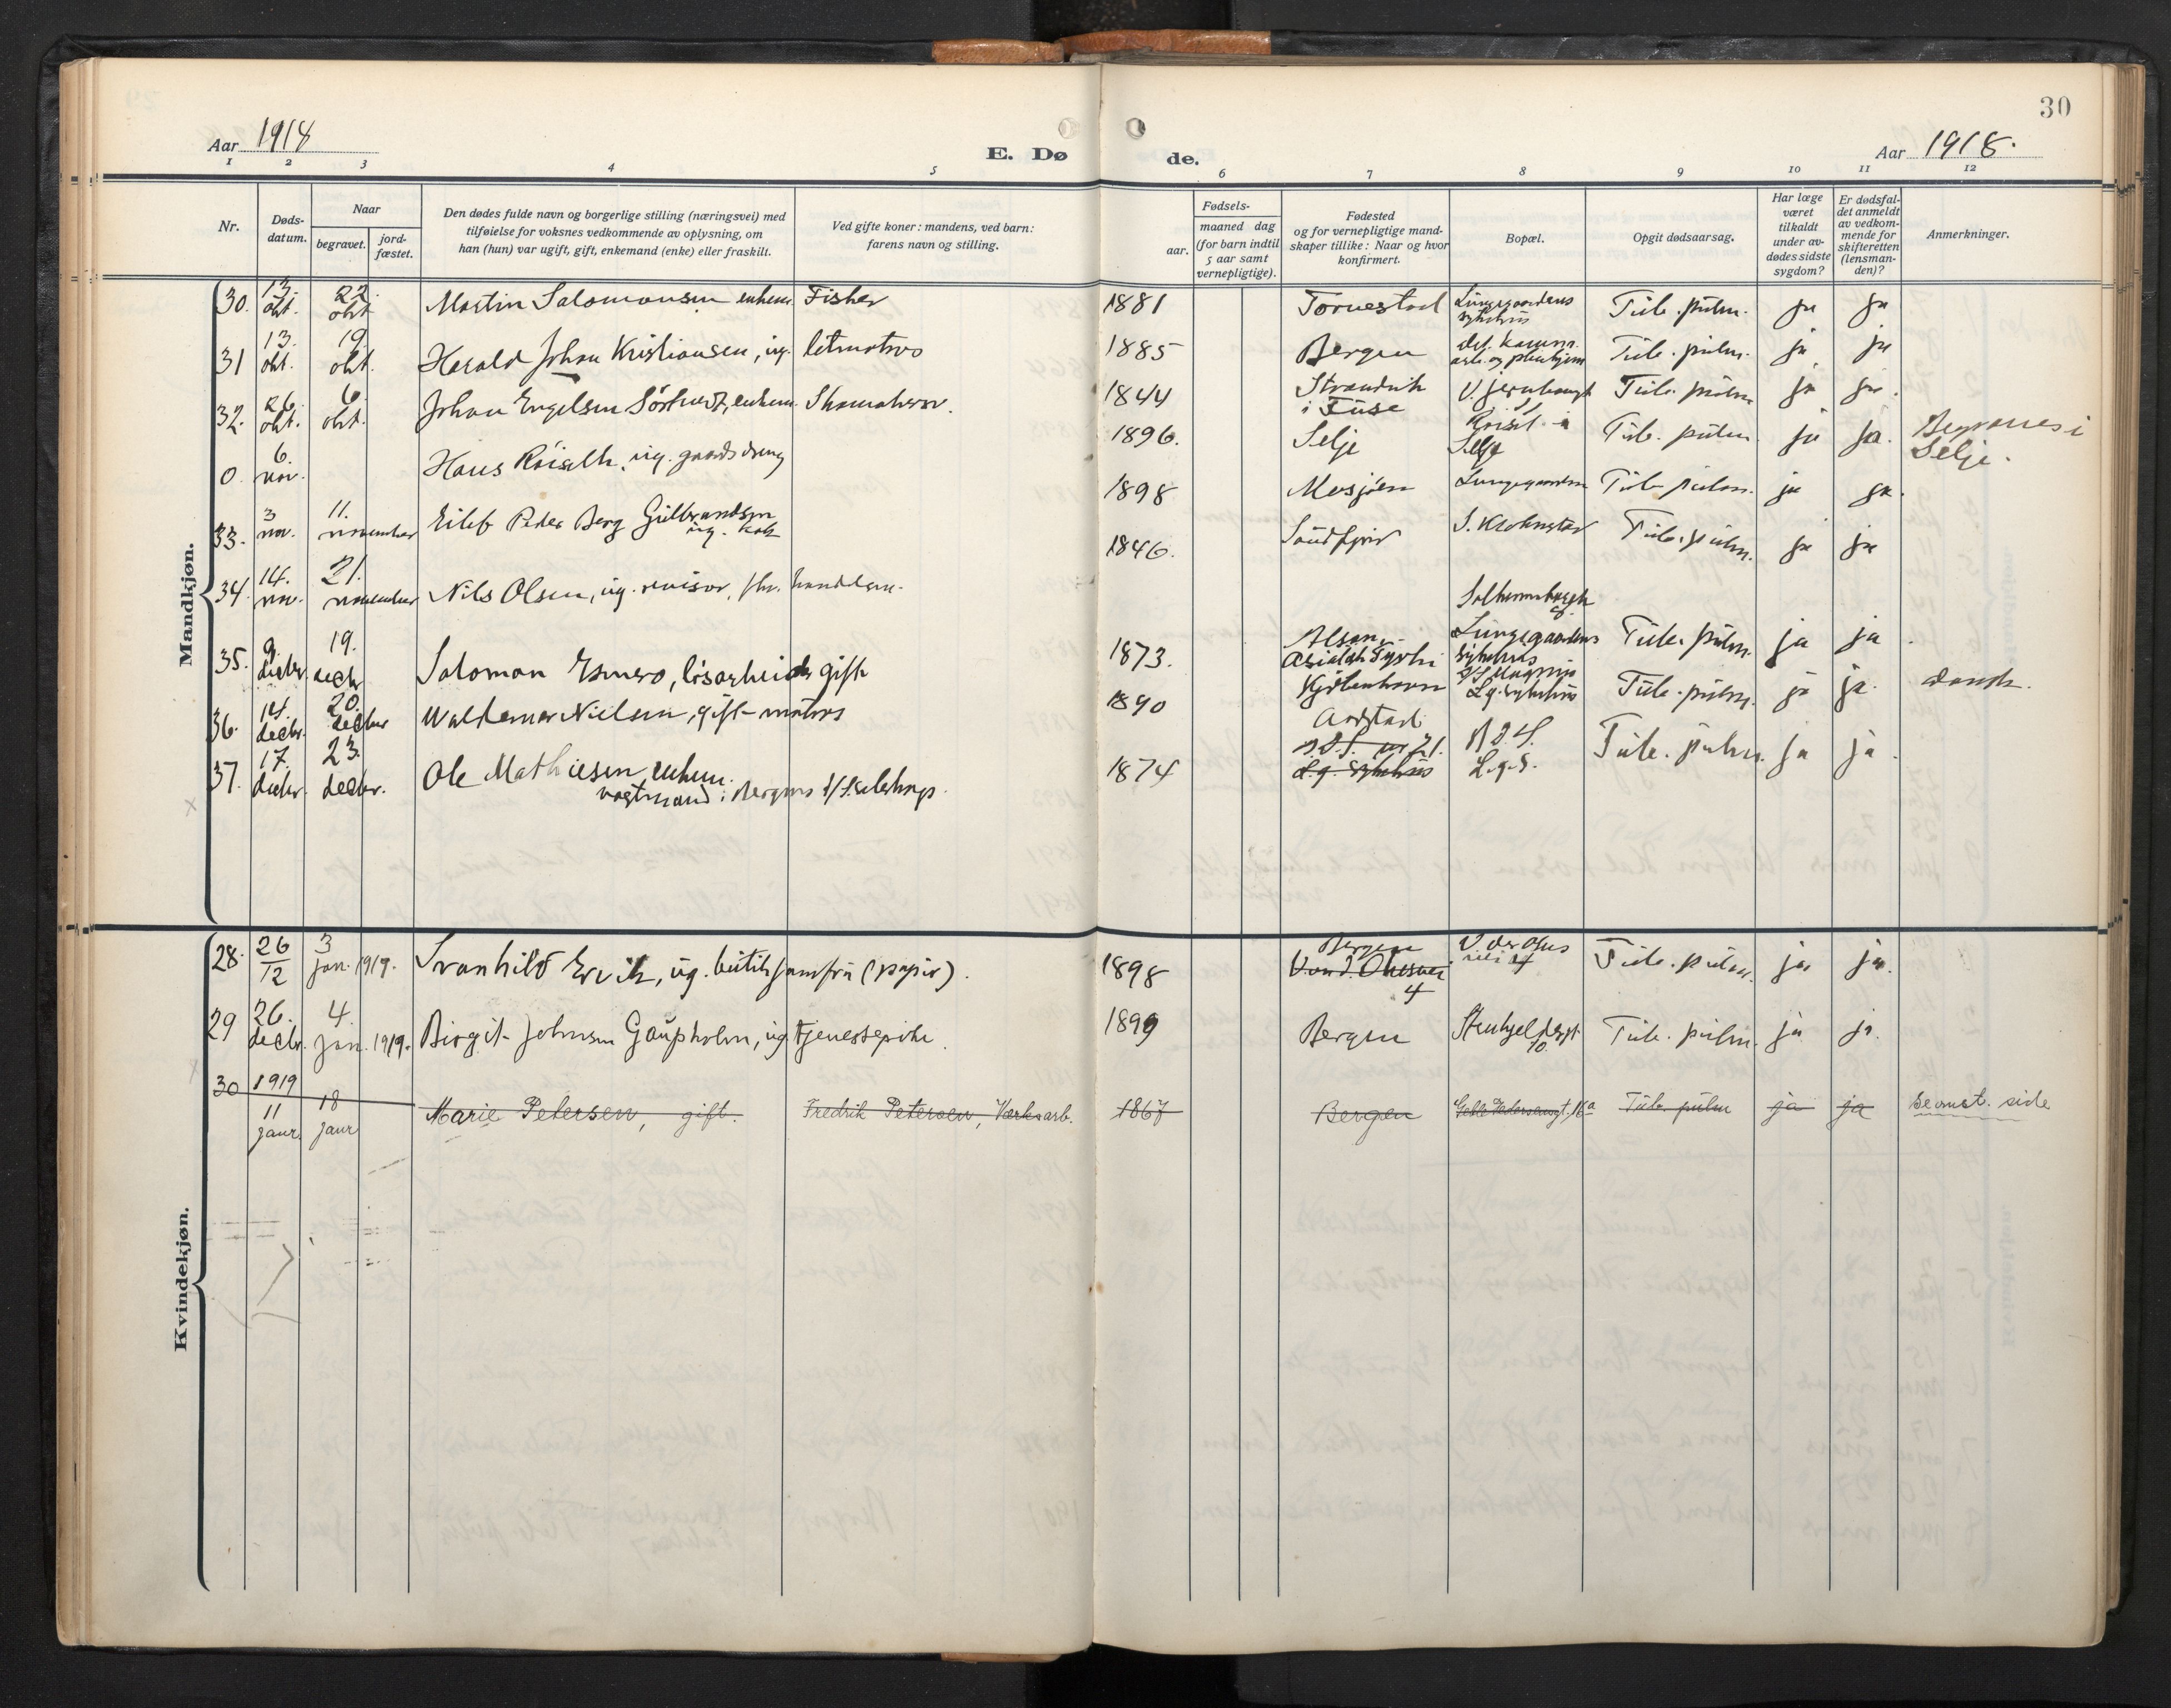 30
Aar 1918
E. Dø
de.
Aar 1918.
1 2 3 4 5 6 7 8 9 10 11 12
Nr.
Døds-
datum.
Naar
begravet.
jord-
fæstet.
Den dødes fulde navn og borgerlige stilling (næringsvei) med
tilføielse for voksnes vedkommende av oplysning, om
han (hun) var ugift, gift, enkemand (enke) eller fraskilt.
Ved gifte koner: mandens, ved barn:
farens navn og stilling.
Fødsels-
aar.
maaned dag
(for barn indtil
5 aar samt
vernepligtige).
Fødested
og for vernepligtige mand-
skaper tillike: Naar og hvor
konfirmert.
Bopæl.
Opgit dødsaarsag.
Har læge
været
tilkaldt
under av-
dødes sidste
sygdom?
Er dødsfal-
det anmeldt
av vedkom-
mende for
skifteretten
(lensman-
den)?
Anmerkninger.
Mandkjøn.
30. 13. okt. 22. okt Martin Salomonsen enkem. Fisker 1881 Tornestad Lungegaardens sykehus Tub. pulm. ja ja
31 13. okt. 19. okt. Harald Johan Kristiansen, ug. letmatros 1885 Bergen det komm. arb. og pleiehjem Tub. pulm. ja ja
32. 26. okt. 6. okt. Johan Engelsen enkem. Skomaker 1844 Strandvik i Fuse Tub. pulm ja ja.
0. 6. nov. Hans ug. gaardsdreng 1896. Selje Selje Tub. pulm. ja ja. Begraves i Selje.
33. 3 nov. 11. november Eilef Peder Berg Gulbrandsen ug. kok 1898 Mosjøen Lungegaarden Tub pulm. ja ja.
34. 14. nov. 21. november Nils Olsen, ug. revisor, fhv. handelsm. 1846. Søndfjord S. Kronstad Tub. pulm. ja ja
35. 9. decbr. 19. decbr Salomon Esmero, løsarbeider gift 1873. Lungegaardens sykehus Tub. pulm. ja ja.
36. 14. decbr. 20. decbr Waldemar Nielsen, gift matros 1890 Kjøbenhavn Lg. sykehus Tub. pulm. ja ja. dansk.
37. 17. decbr. 23. decbr. Ole Mathiesen, enkem. vagtmand i Bergens 1874 Lg. sykehus L.g.S. Tub. pulm. ja ja.
Kvindekjøn.
28. 26/12 3 jan. 1919. Svanhild Ervik, ug. butikjomfru (papir). 1898 Bergen 4 Tub. pulm. ja ja.
29 26. decbr. 4. jan. 1919. Birgit Johnsen Gaupholm, ug tjenestepike. 1899 Bergen Stenkjeldergt 10. Tub. pulm. ja ja.
30 1919 11 januar 18 januar Marie Petersen, gift. Fredrik Petersen, Værksarb. 1867 Bergen Gabbe Pedersensgt. 16a Tub. pulm ja ja Se omst. side